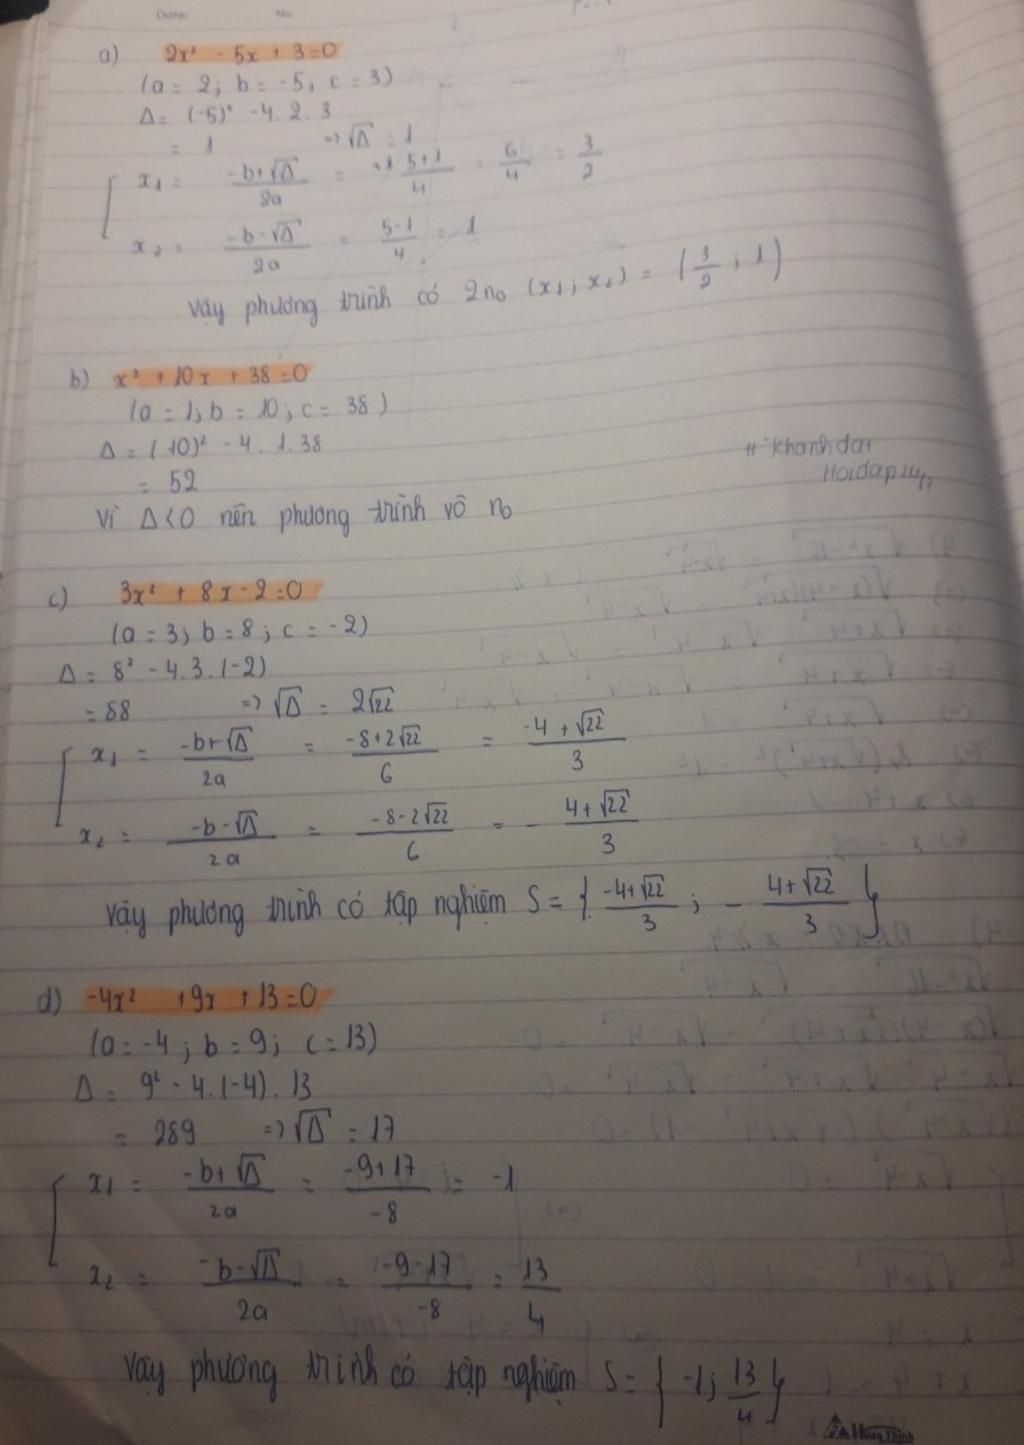 Date: No
a) 2x² - 5x + 3 = 0
(a = 2; b = -5; c = 3)
Δ = (-5)² - 4. 2. 3
= 1 => √Δ = 1
x₁ = (-b+√Δ)/2a = (5+1)/4 = 6/4 = 3/2
x₂ = (-b-√Δ)/2a = (5-1)/4 = 1
Vậy phương trình có 2 n₀ (x₁; x₂) = (3/2 ; 1)
b) x² + 10x + 38 = 0
(a = 1; b = 10; c = 38)
Δ = (10)² - 4. 1. 38
= 52
Vì Δ < 0 nên phương trình vô n₀
# khanhdat
Hoidap247
c) 3x² + 8x - 2 = 0
(a = 3; b = 8; c = -2)
Δ = 8² - 4. 3. (-2)
= 88 => √Δ = 2√22
x₁ = (-b+√Δ)/2a = (-8+2√22)/6 = (-4+√22)/3
x₂ = (-b-√Δ)/2a = (-8-2√22)/6 = - (4+√22)/3
Vậy phương trình có tập nghiệm S = { (-4+√22)/3 ; - (4+√22)/3 }
d) -4x² + 9x + 13 = 0
(a = -4; b = 9; c = 13)
Δ = 9² - 4. (-4). 13
= 289 => √Δ = 17
x₁ = (-b+√Δ)/2a = (-9+17)/-8 = -1
x₂ = (-b-√Δ)/2a = (-9-17)/-8 = 13/4
Vậy phương trình có tập nghiệm S = { -1; 13/4 }
Hùng Thịnh